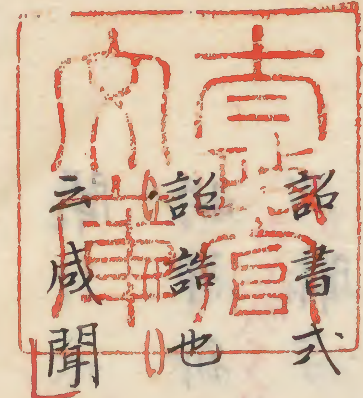 詔書式
詔誥也
云咸聞